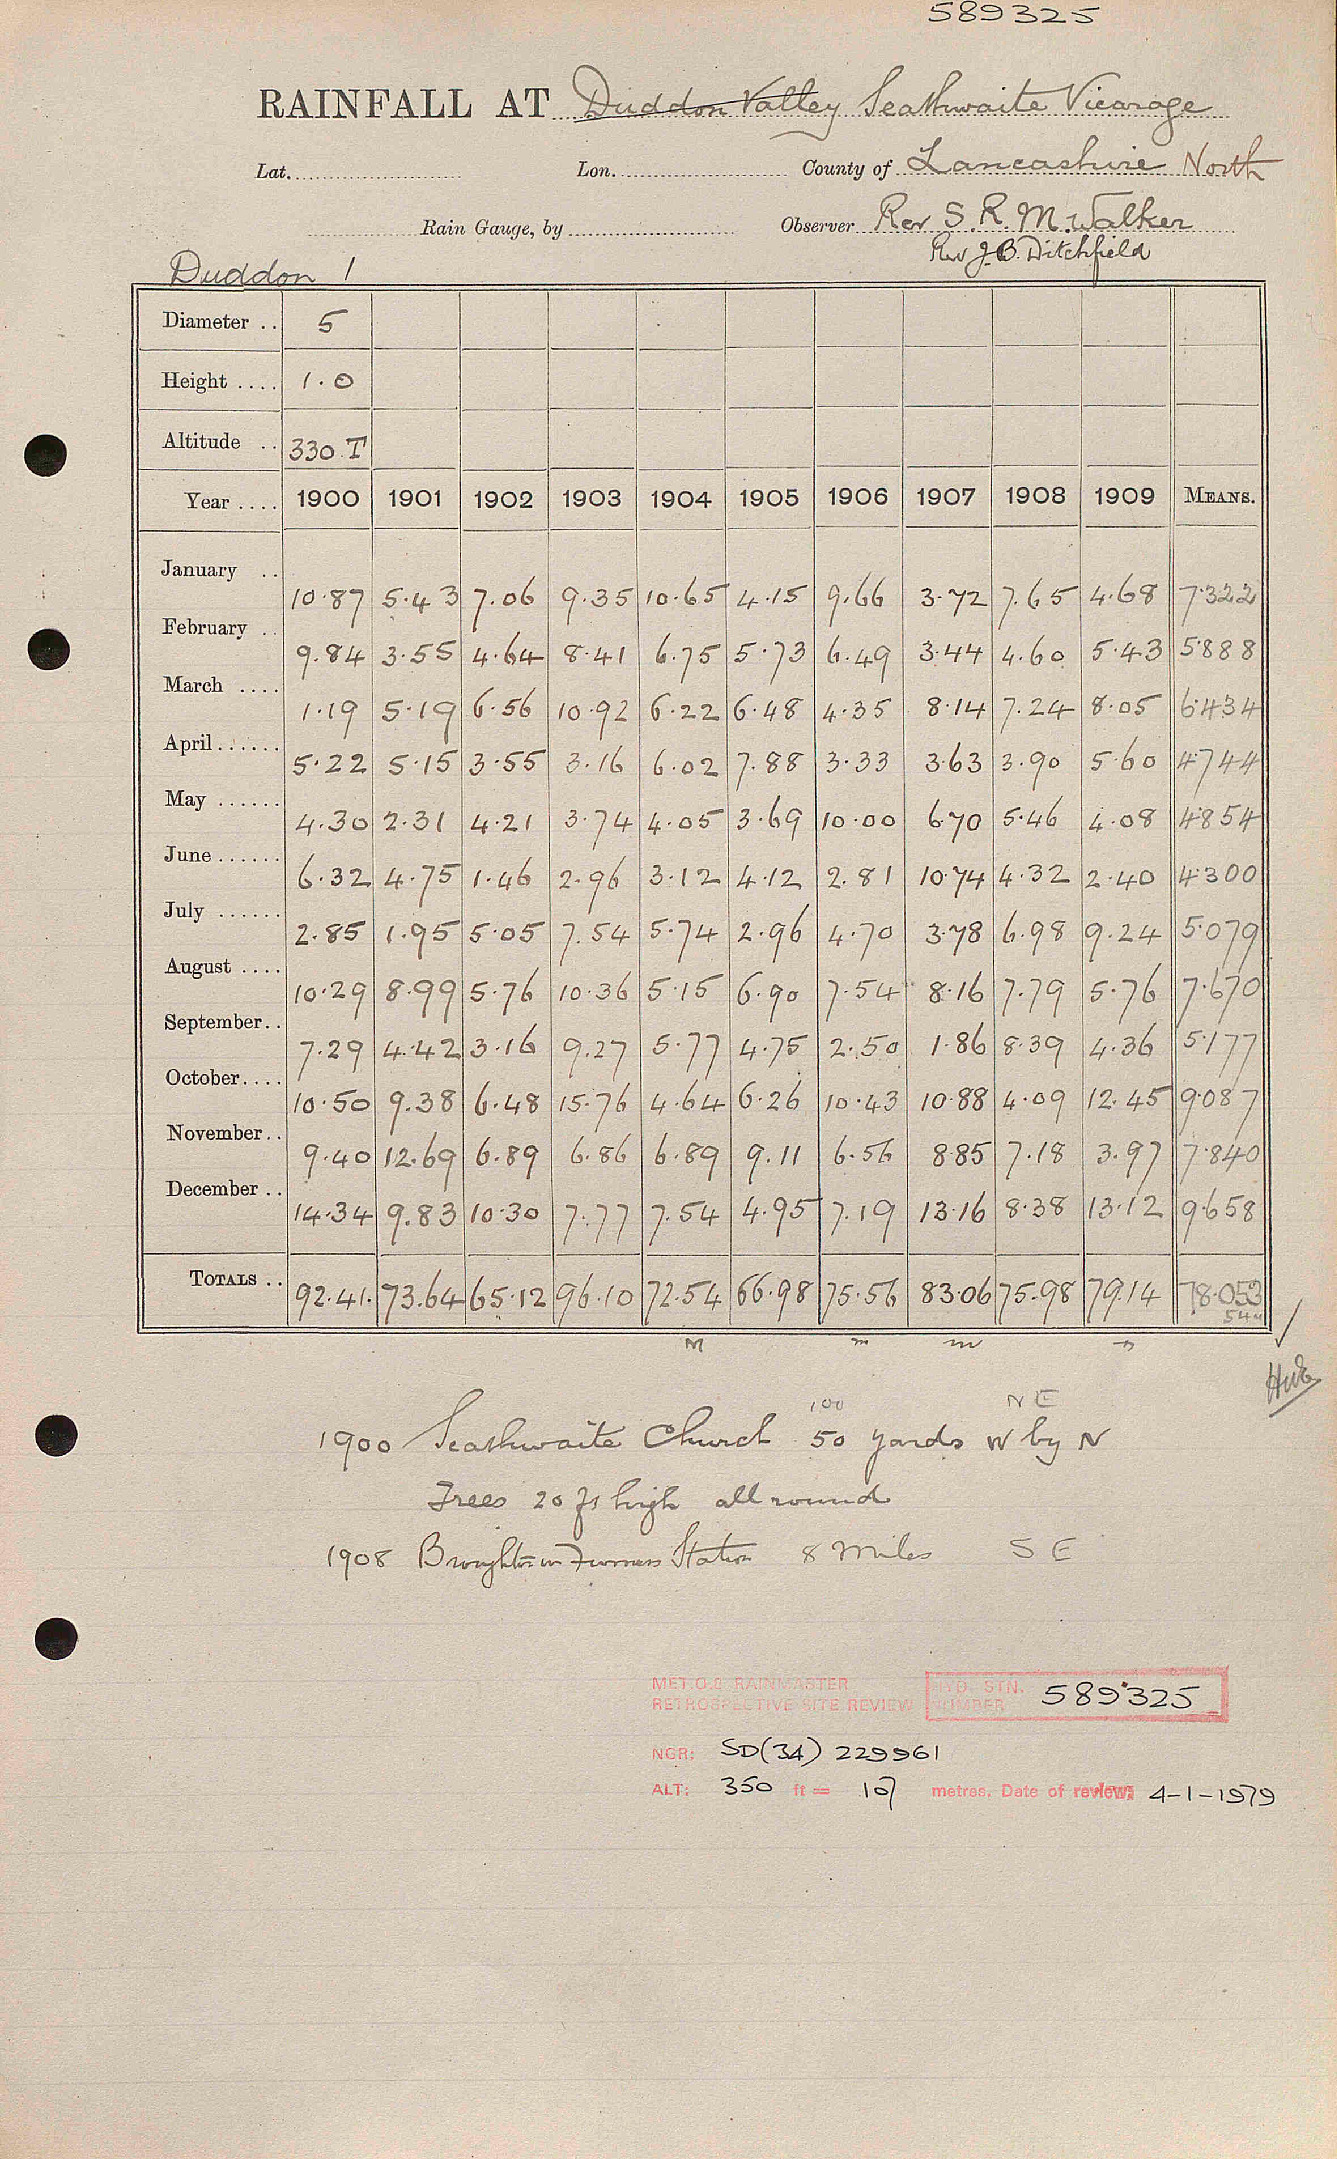 589325
RAINFALL AT Duddon Valley Seathwaite Vicarage
Lat. Lon. County of Lancashire North
Rain Gauge, by Observer Rev S. R. M. Walker
Rev J. B. Ditchfield
Duddon 1
Diameter .. 5
Height .... 1.0
Altitude .. 330 T
Year .... 1900 1901 1902 1903 1904 1905 1906 1907 1908 1909 MEANS.
January .. 10.87 5.43 7.06 9.35 10.65 4.15 9.66 3.72 7.65 4.68 7.322
February .. 9.84 3.55 4.64 8.41 6.75 5.73 6.49 3.44 4.60 5.43 5.888
March .... 1.19 5.19 6.56 10.92 6.22 6.48 4.35 8.14 7.24 8.05 6.434
April ...... 5.22 5.15 3.55 3.16 6.02 7.88 3.33 3.63 3.90 5.60 4.744
May ...... 4.30 2.31 4.21 3.74 4.05 3.69 10.00 6.70 5.46 4.08 4.854
June ...... 6.32 4.75 1.46 2.96 3.12 4.12 2.81 10.74 4.32 2.40 4.300
July ...... 2.85 1.95 5.05 7.54 5.74 2.96 4.70 3.78 6.98 9.24 5.079
August .... 10.29 8.99 5.76 10.36 5.15 6.90 7.54 8.16 7.79 5.76 7.670
September .. 7.29 4.42 3.16 9.27 5.77 4.75 2.50 1.86 8.39 4.36 5.177
October .... 10.50 9.38 6.48 15.76 4.64 6.26 10.43 10.88 4.09 12.45 9.087
November .. 9.40 12.69 6.89 6.86 6.89 9.11 6.56 8.85 7.18 3.97 7.840
December .. 14.34 9.83 10.30 7.77 7.54 4.95 7.19 13.16 8.38 13.12 9.658
TOTALS .. 92.41 73.64 65.12 96.10 72.54 66.98 75.56 83.06 75.98 79.14 78.053
100 NE
1900 Seathwaite Church 50 yards W by N
Trees 20 ft high all round
1908 Broughton in Furness Station 8 Miles S E
MET.O.8 RAINMASTER
RETROSPECTIVE SITE REVIEW
HYD. STN. NUMBER 589325
NGR: SD(34) 229961
ALT: 350 ft = 107 metres. Date of review: 4-1-1979